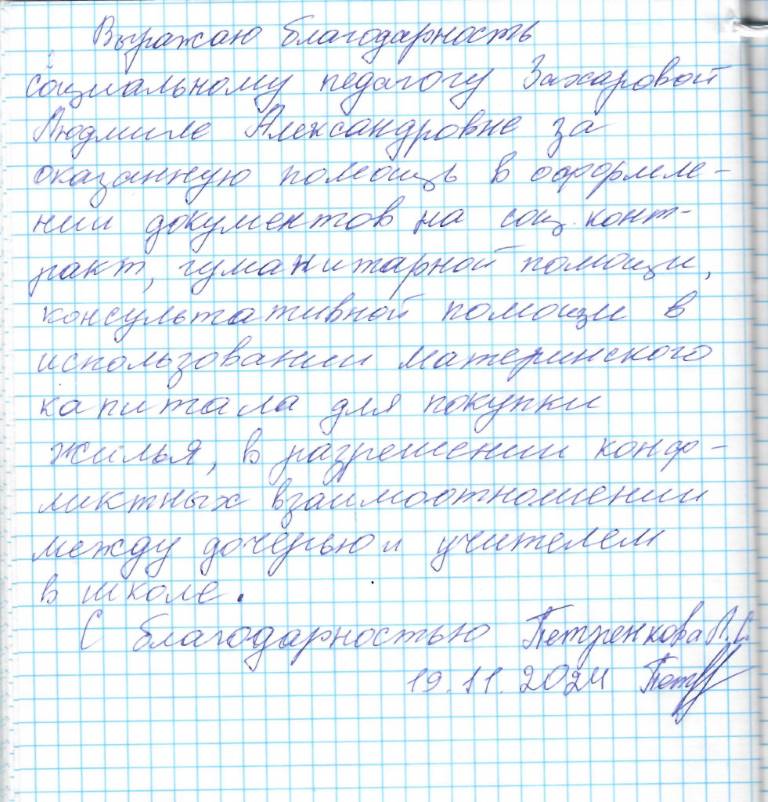 Выражаю благодарность
социальному педагогу Захаровой
Людмиле Александровне за
оказанную помощь в оформле-
нии документов на соц. конт-
ракт, гуманитарной помощи,
консультативной помощи в
использовании материнского
капитала для покупки
жилья, в разрешении конф-
ликтных взаимоотношении
между дочерью и учителем
в школе.
С благодарностью Петренкова Л.С.
19.11.2024